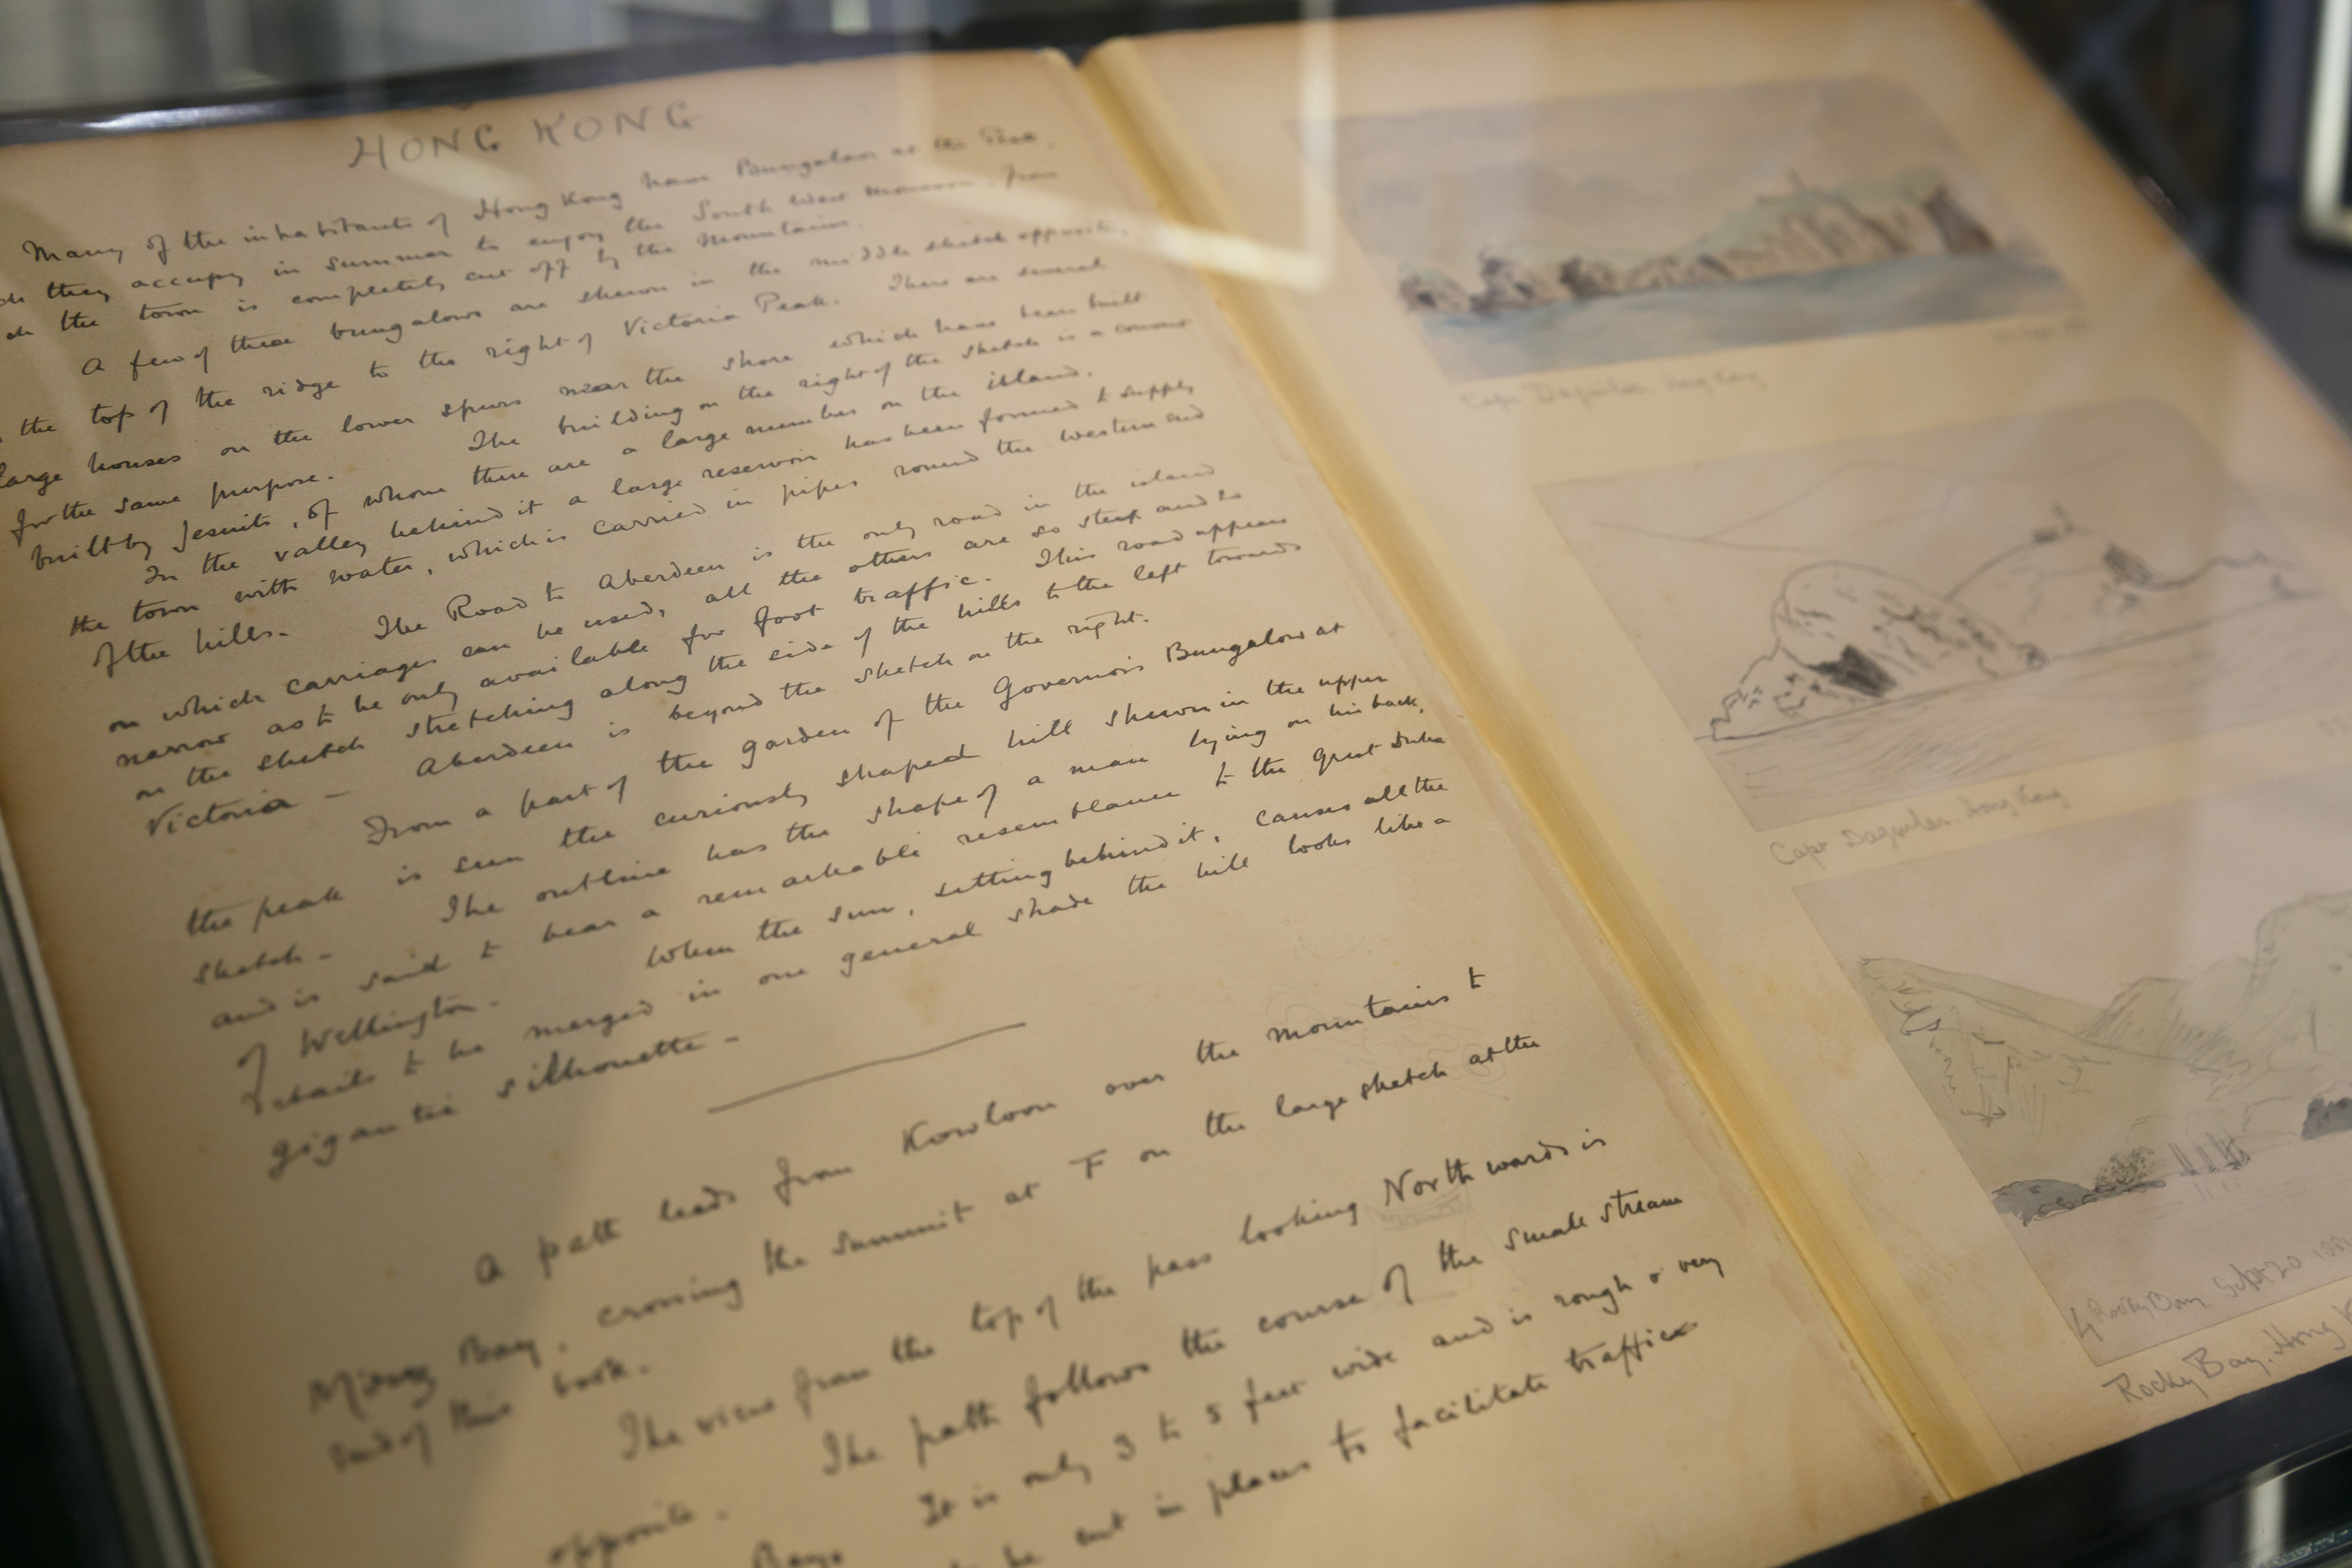 HONG KONG
Many of the inhabitants of Hong Kong have Bungalows at the Peak,
they occupy in summer to enjoy the South West monsoon from
the town is completely cut off by the mountains.
A few of these bungalows are shewn in the middle sketch opposite,
the top of the ridge to the right of Victoria Peak. There are several
large houses on the lower spurs near the shore which have been built
for the same purpose. The building on the right of the sketch is a convent
built by Jesuits, of whom there are a large number on the island.
In the valley behind it a large reservoir has been formed to supply
the town with water, which is carried in pipes round the western end
of the hills.
The Road to Aberdeen is the only road in the island
on which carriages can be used, all the others are so steep and so
narrow as to be only available for foot traffic. This road appears
on the sketch stretching along the side of the hills to the left towards
Victoria - Aberdeen is beyond the sketch on the right.
From a part of the garden of the Governor's Bungalow at
the peak is seen the curiously shaped hill shewn in the upper
sketch - The outline has the shape of a man lying on his back,
and is said to bear a remarkable resemblance to the great Duke
of Wellington - When the sun, setting behind it, causes all the
details to be merged in one general shade the hill looks like a
gigantic silhouette -
A path leads from Kowloon over the mountains to
Bay, crossing the summit at F on the large sketch at the
end of this book.
The view from the top of the pass looking Northwards is
opposite. The path follows the course of the small stream
Bay. It is only 3 to 5 feet wide and is rough & very
to be cut in places to facilitate traffic
Cape Daguilar, Hong Kong
Cape Daguilar Hong Kong
Rocky Bay Sept 20
Rocky Bay, Hong